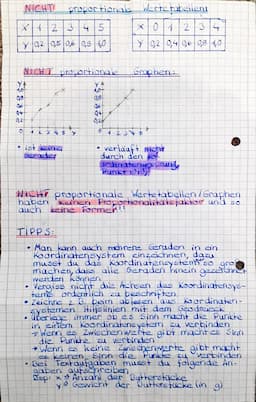 NICHT! proportionale Wertetabellen:
x 1 2 3 4 5
y 0,2 0,5 0,6 0,8 1,0
x 0 1 2 3 4
y 0,2 0,4 0,6 0,8 1,0
NICHT proportionale Graphen:
• ist keine Gerade
• verläuft nicht
durch den
NICHT proportionale Wertetabellen/Graphen
haben keinen Proportionalitätsfaktor und so
auch keine Formel!!
TIPPS:
• Man kann auch mehrere Geraden in ein
Koordinatensystem einzeichnen, dazu
musst du das Koordinatensystem so groß
machen, dass alle Geraden hinein gezeichnet
werden können.
• Vergiss nicht die Achsen des Koordinatensys-
tems ordentlich zu beschriften.
• Zeichne z.B. beim ablesen aus Koordinaten-
systemen Hilfslinien mit dem Geodreieck
• Überlege immer ob es Sinn macht die Punkte
in einem Koordinatensystem zu verbinden
→ Wenn es Zwischenwerte gibt macht es Sinn
die Punkte zu verbinden
→ Wenn es keine Zwischenwerte gibt macht
es keinen Sinn die Punkte zu verbinden
• Bei Textaufgaben musst du folgende An-
gaben aufschreiben
Bsp: x → Anzahl der
y → Gewicht der (in g)